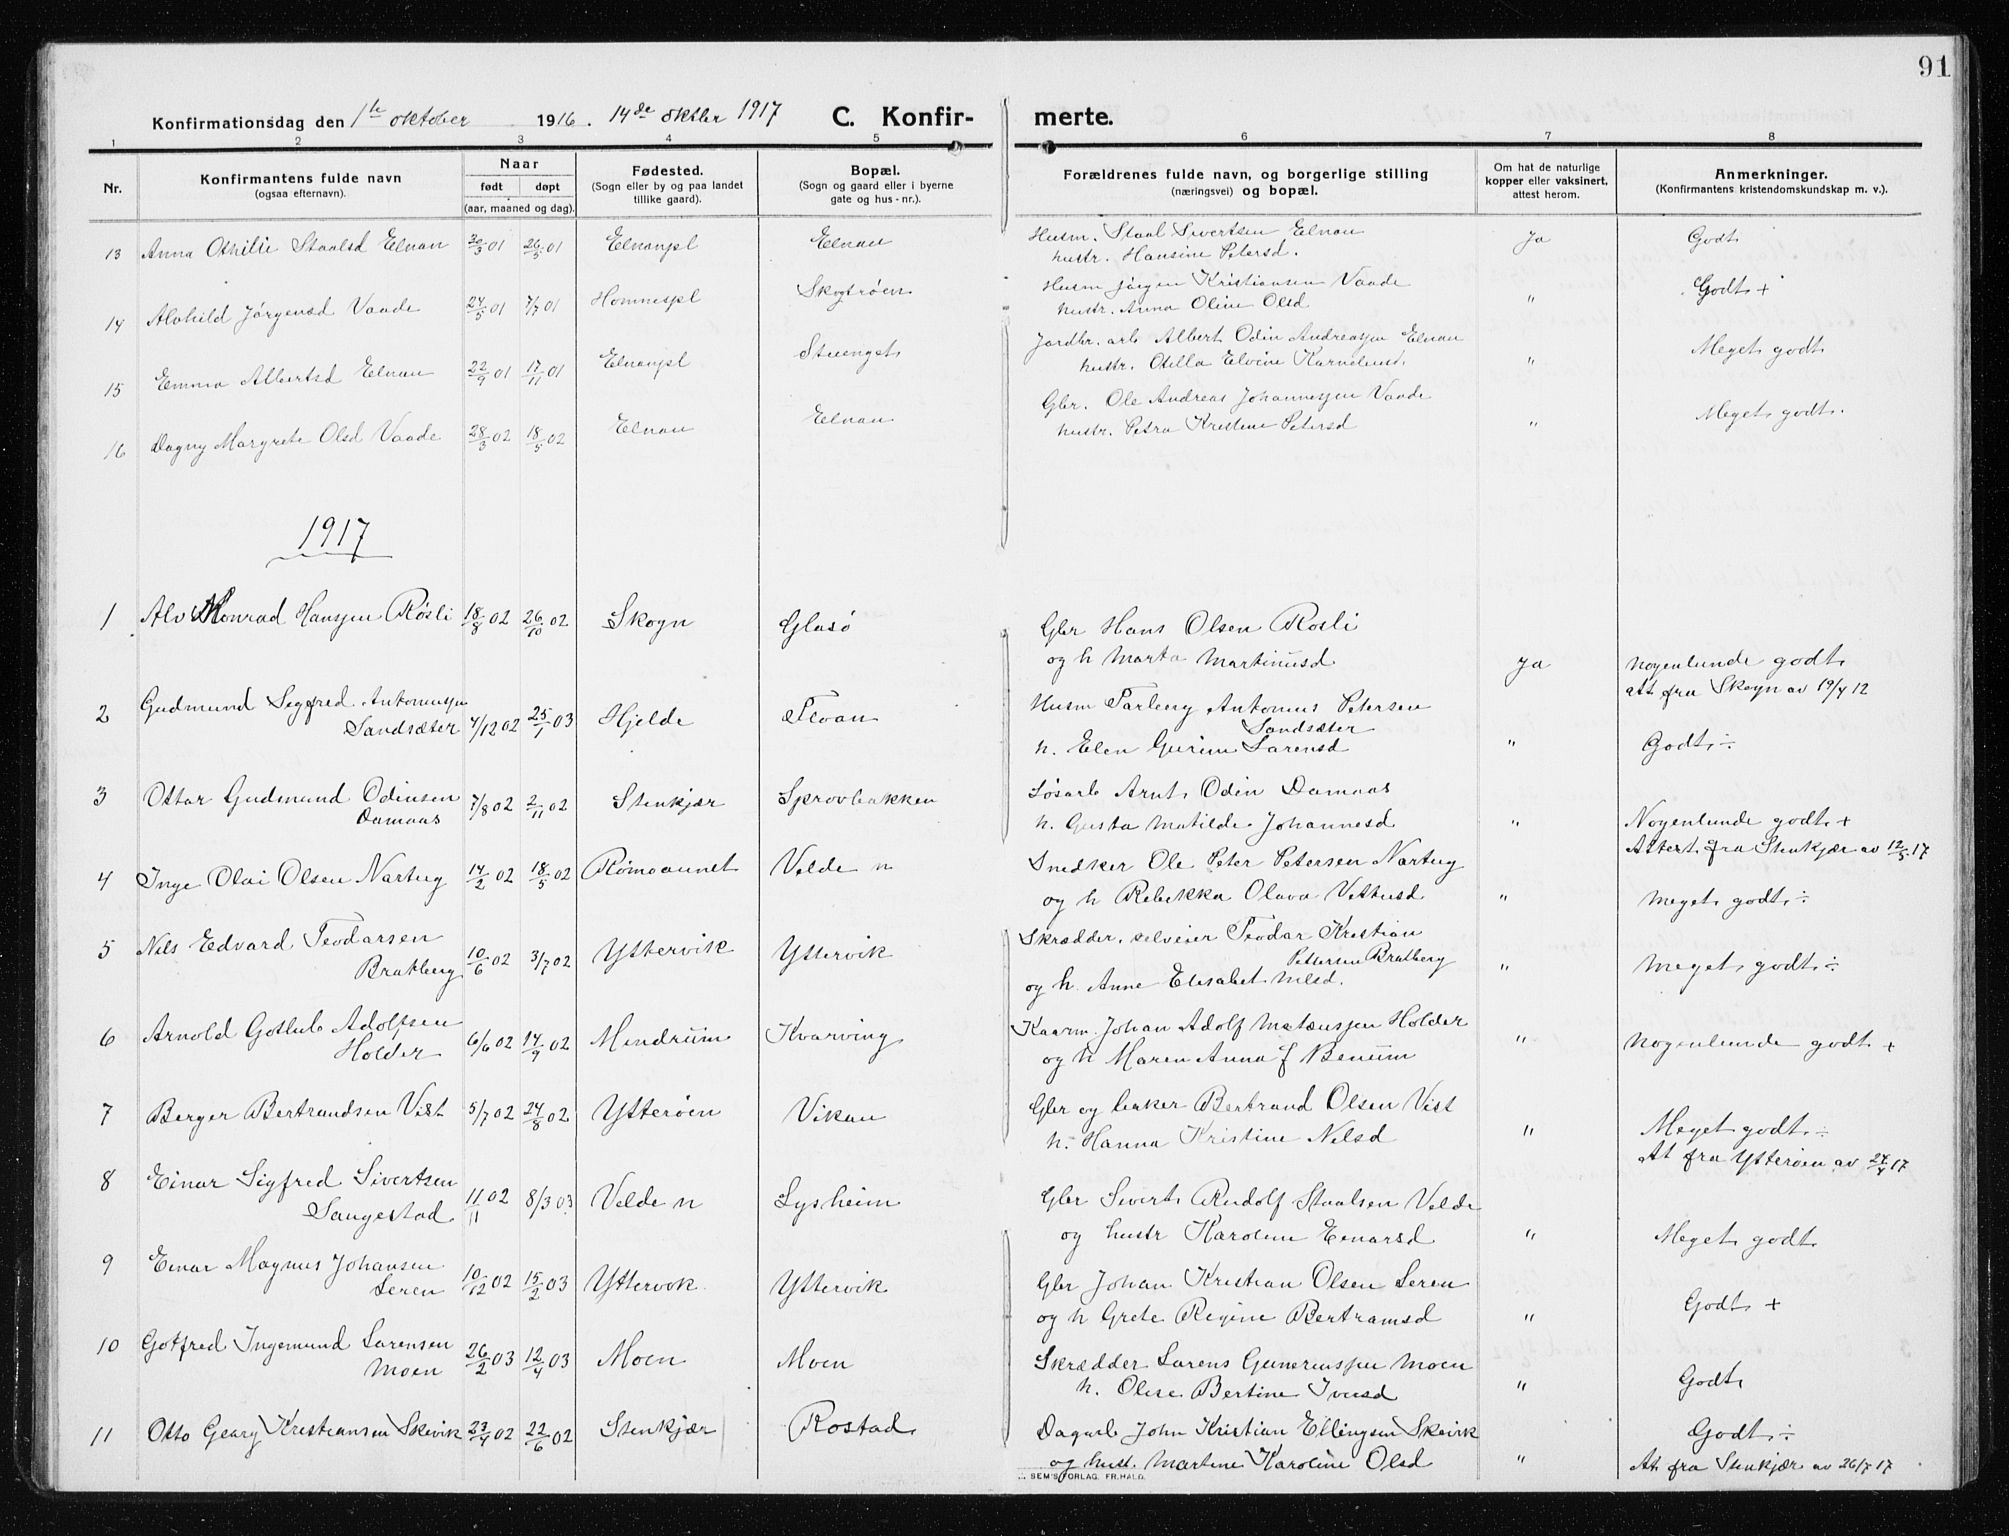 91
Konfirmationsdag den 1te oktober 1916. 14de oktbr 1917 C. Konfirmerte.
1 2 3 4 5 6 7 8
Nr. Konfirmantens fulde navn (ogsaa efternavn). Naar født døpt (aar, maaned og dag). Fødested. (Sogn eller by og paa landet tillike gaard). Bopæl. (Sogn og gaard eller i byerne gate og hus-nr.). Forældrenes fulde navn, og borgerlige stilling (næringsvei) og bopæl. Om hat de naturlige kopper eller vaksinert, attest herom. Anmerkninger. (Konfirmantens kristendomskundskap m. v.).
13 Anna Othilie Staalsd Elnan 20/3 01 26/5 01 Elnanspl Elnan Husm. Staal Sivertsen Elnan Ja Godt
hustr. Hansine Petersd.
14 Alvhild Jørgensd Vaade 24/5 01 7/7 01 Homnespl Skogtrøen Husm Jørgen Kristiansen Vaade " Godt +
hustr. Anna Oline Olsd
15 Emma Albertsd Elnan 22/9 01 17/11 01 Elnanspl Stuenget Jordbr. arb Albert Odin Andreassen Elnan " Meget godt
hustr. Otilla Elvine
16 Dagny Margrete Olsd Vaade 28/3 02 18/5 02 Elnan Elnan Gbr. Ole Andreas Johannessen Vaade " Meget godt.
hustr. Petra Kristine Petersd
1917
1 Alv Konrad Hanssen Røsli 18/8 02 26/10 02 Skogn Glasø Gbr Hans Olsen Rosli
og h Marta Martinusd Ja Nogenlunde godt
att fra Skogn av 19/4 12
2 Gudmund Sigfred Antoniussen Sandsæter 4/12 02 25/1 03 Hjelde Floan Husm Torberg Antonius Petersen Sandsæter
h. Elen Gurine Larensd " Godt ÷
3 Ottar Gudmund Odinsen Damaas 7/8 02 2/11 02 Stenkjær Sprovbakken Løsarb Arnt Odin Damaas
h. Gusta Matilde Johannesd " Nogenlunde godt +
Attest fra Stenkjær av 12/5 17
4 Inge Olai Olsen Nartug 14/2 02 18/5 02 Rømoaunet Velde n Snedker Ole Peter Petersen Nartug
og h Rebekka Olava " Meget godt ÷
5 Nils Edvard Teodorsen Bratberg 10/6 02 3/7 02 Yttervik Yttervik Skrædder, selveier Teodor Kristian Pettersen Bratberg
og h. Anne Elisabet Nilsd. " Meget godt ÷
6 Arnold Gotlieb Adolfsen Holder 6/6 02 14/9 02 Mindrum Kvarving Kaarm. Johan Adolf Mateussen Holder
og h Maren Anna f Benum " Nogenlunde godt +
7 Berger Bertrandsen Vist 5/7 02 24/8 02 Ytterøen Vikan Gbr og baker Bertrand Olsen Vist
h. Hanna Kristine Nilsd " Meget godt ÷
At fra Ytterøen av 24/4 17
8 Einar Sigfred Sivertsen Saugestad 11/11 02 8/3 03 Velde n Lysheim Gbr Sivert Rudolf Staalsen Velde
og hustr Karoline Einarsd " Meget godt
9 Einar Magnus Johansen Seren 10/12 02 15/2 03 Yttervik Yttervik Gbr Johan Kristian Olsen Seren
og h Grete Regine Bertramsd " Godt +
10 Gotfred Ingemund Larensen Moen 26/2 03 12/4 03 Moen Moen Skrædder Larens Gunerussen Moen
h. Oline Bertine Iversd " Godt
11 Otto Georg Kristiansen Skevik 23/4 02 22/6 02 Stenkjær Rostad Dagarb John Kristian Ellingsen Skevik Godt ÷
og hust. Martine Karoline Olsd " At fra Stenkjær av 26/7 17
SEM'S FORLAG. FR.HALD.